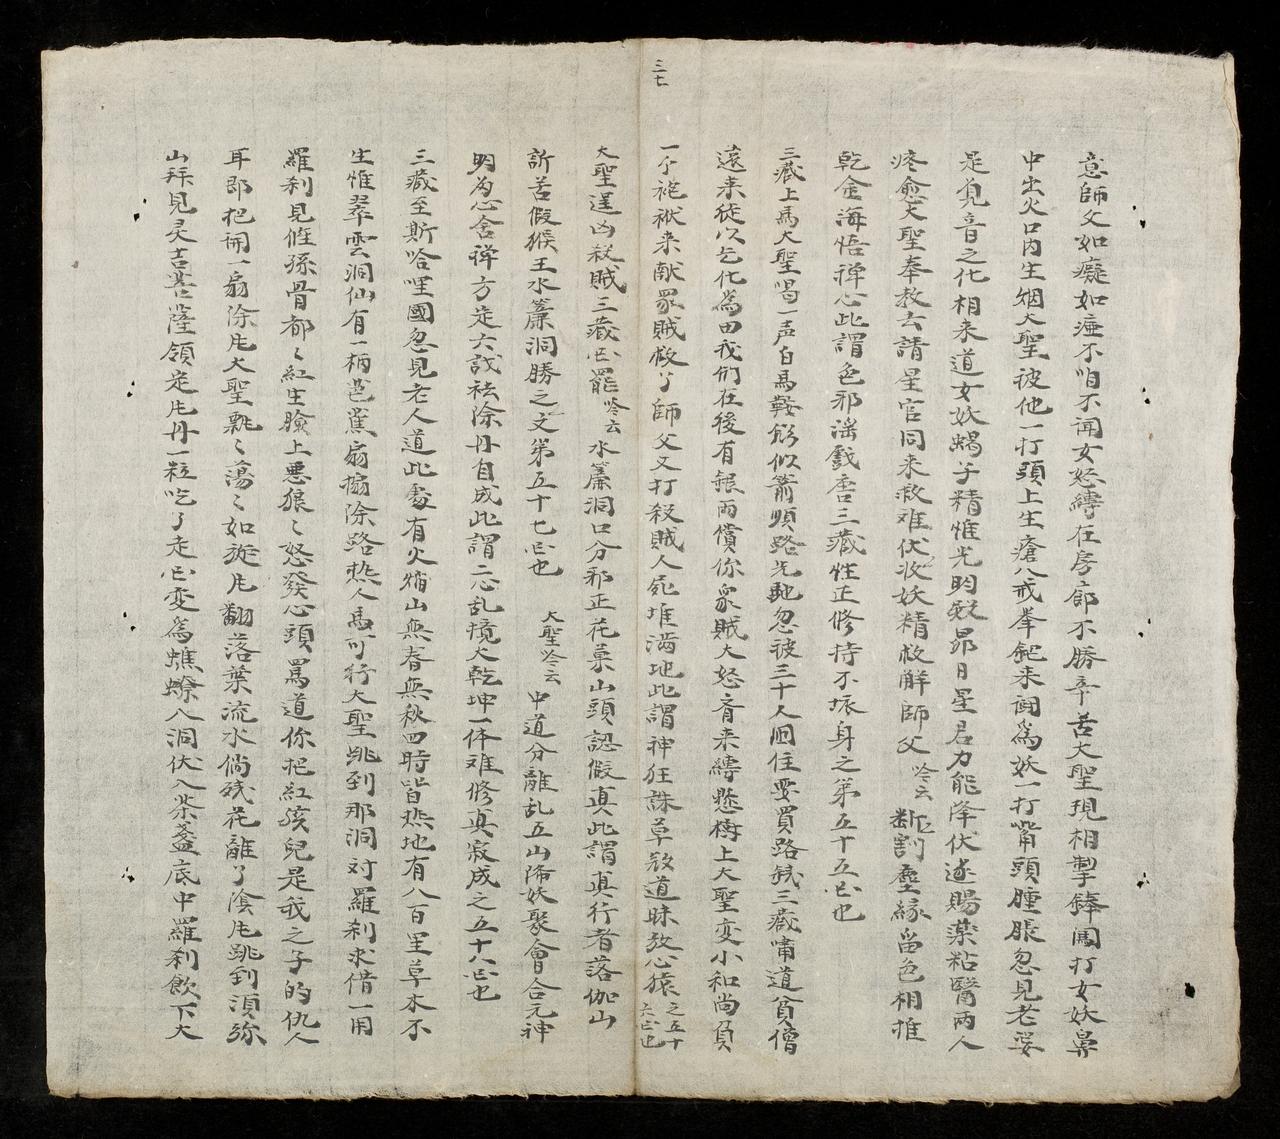 意師父如癡如痙不咱不闻女怒縛在房郎不勝辛苦大聖現相掣鋒闖打女妖鼻
中出火口内生烟大聖被他一打頭上生瘡八戒拳鈀来闘為妖一打嘴頭腫脹忽見老婆
是覓音之化相来道女妖蝎子精惟光明殺昴日星君力能降伏遂賜薬粘醫兩人
疼愈大聖奉教去請星官同来救难伏收妖精救解師父 咚云 断割塵緣留色相推
乾金海悟禅心此謂色邪滛戲唐三藏性正修持不垢身之第五十五囬也
三藏上馬大聖喝一声白馬鞍飭似箭順路先馳忽被三十人囬住要買路銭三藏啸道貧僧
遠来徒以乞化為由我们在後有銀両償你衆賊大怒脊来縛懸樹上大聖变小和尚負
三七
一个袍袱来献衆賊救了師父又打殺賊人死堆满地此謂神狂誅草㓂道昧放心猿 之五十六囬也
大聖逞凶殺賊三藏囬罷 咚云 水簾洞口分邪正花菓山頭認假真此謂真行者落伽山
訢苦假猴王水簾洞勝之文第五十七囬也 大聖咚云 中道分離乱五山降妖聚會合元神
明為心舍禅方定六識祛除丹自成此謂二心乱境大乾坤一体难修真寂成之五十八囬也
三藏至斯哈哩國忽見老人道此處有火焰山無春無秋四時皆热地有八百里草木不
生惟翠雲洞仙有一柄芭蕉扇搧除路热人馬可行大聖跳到那洞対羅刹求借一用
羅刹見姓孫骨都〻紅生臉上悪狼〻怒發心頭罵道你把紅孩兒是我之子的仇人
耳即把開一扇除凬大聖飄〻蕩〻如旋凬翻落葉流水倘残花離了陰凬跳到湏弥
山拜見灵吉菩薩領定凬丹一粒吃了走囬变為蟭蟟入洞伏入茶盞底中羅刹飲下大